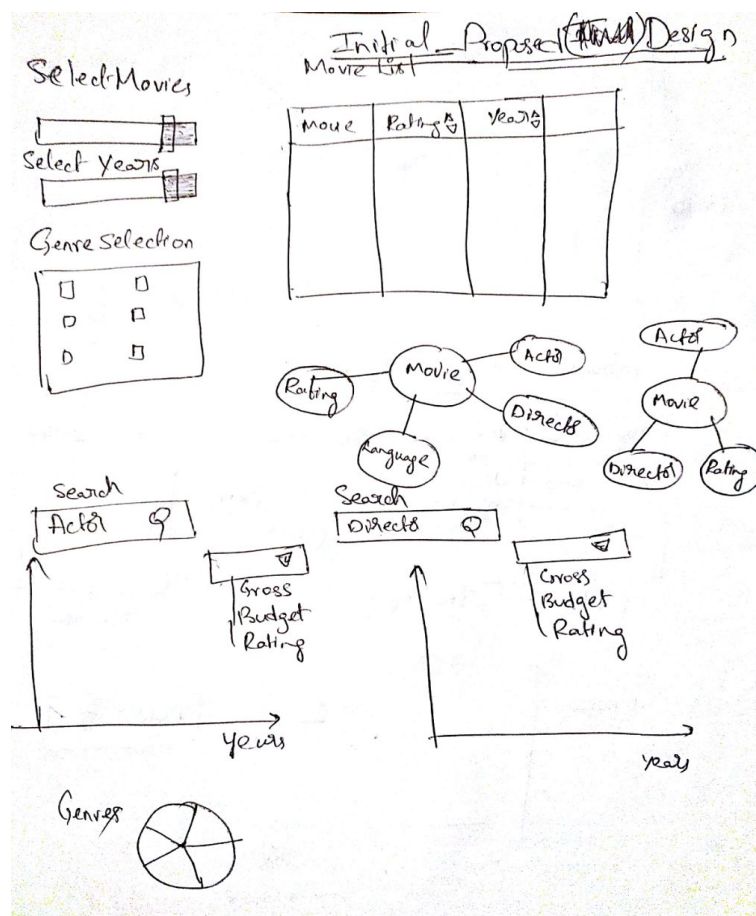 Initial Proposed Design
Movie List
Select Movies
Select Years
Genre Selection
Movie Rating Year
Rating Movie Actor
Director
Language
Actor
Movie
Director Rating
Search
Actor
Gross
Budget
Rating
years
Search
Director
Gross
Budget
Rating
years
Genres